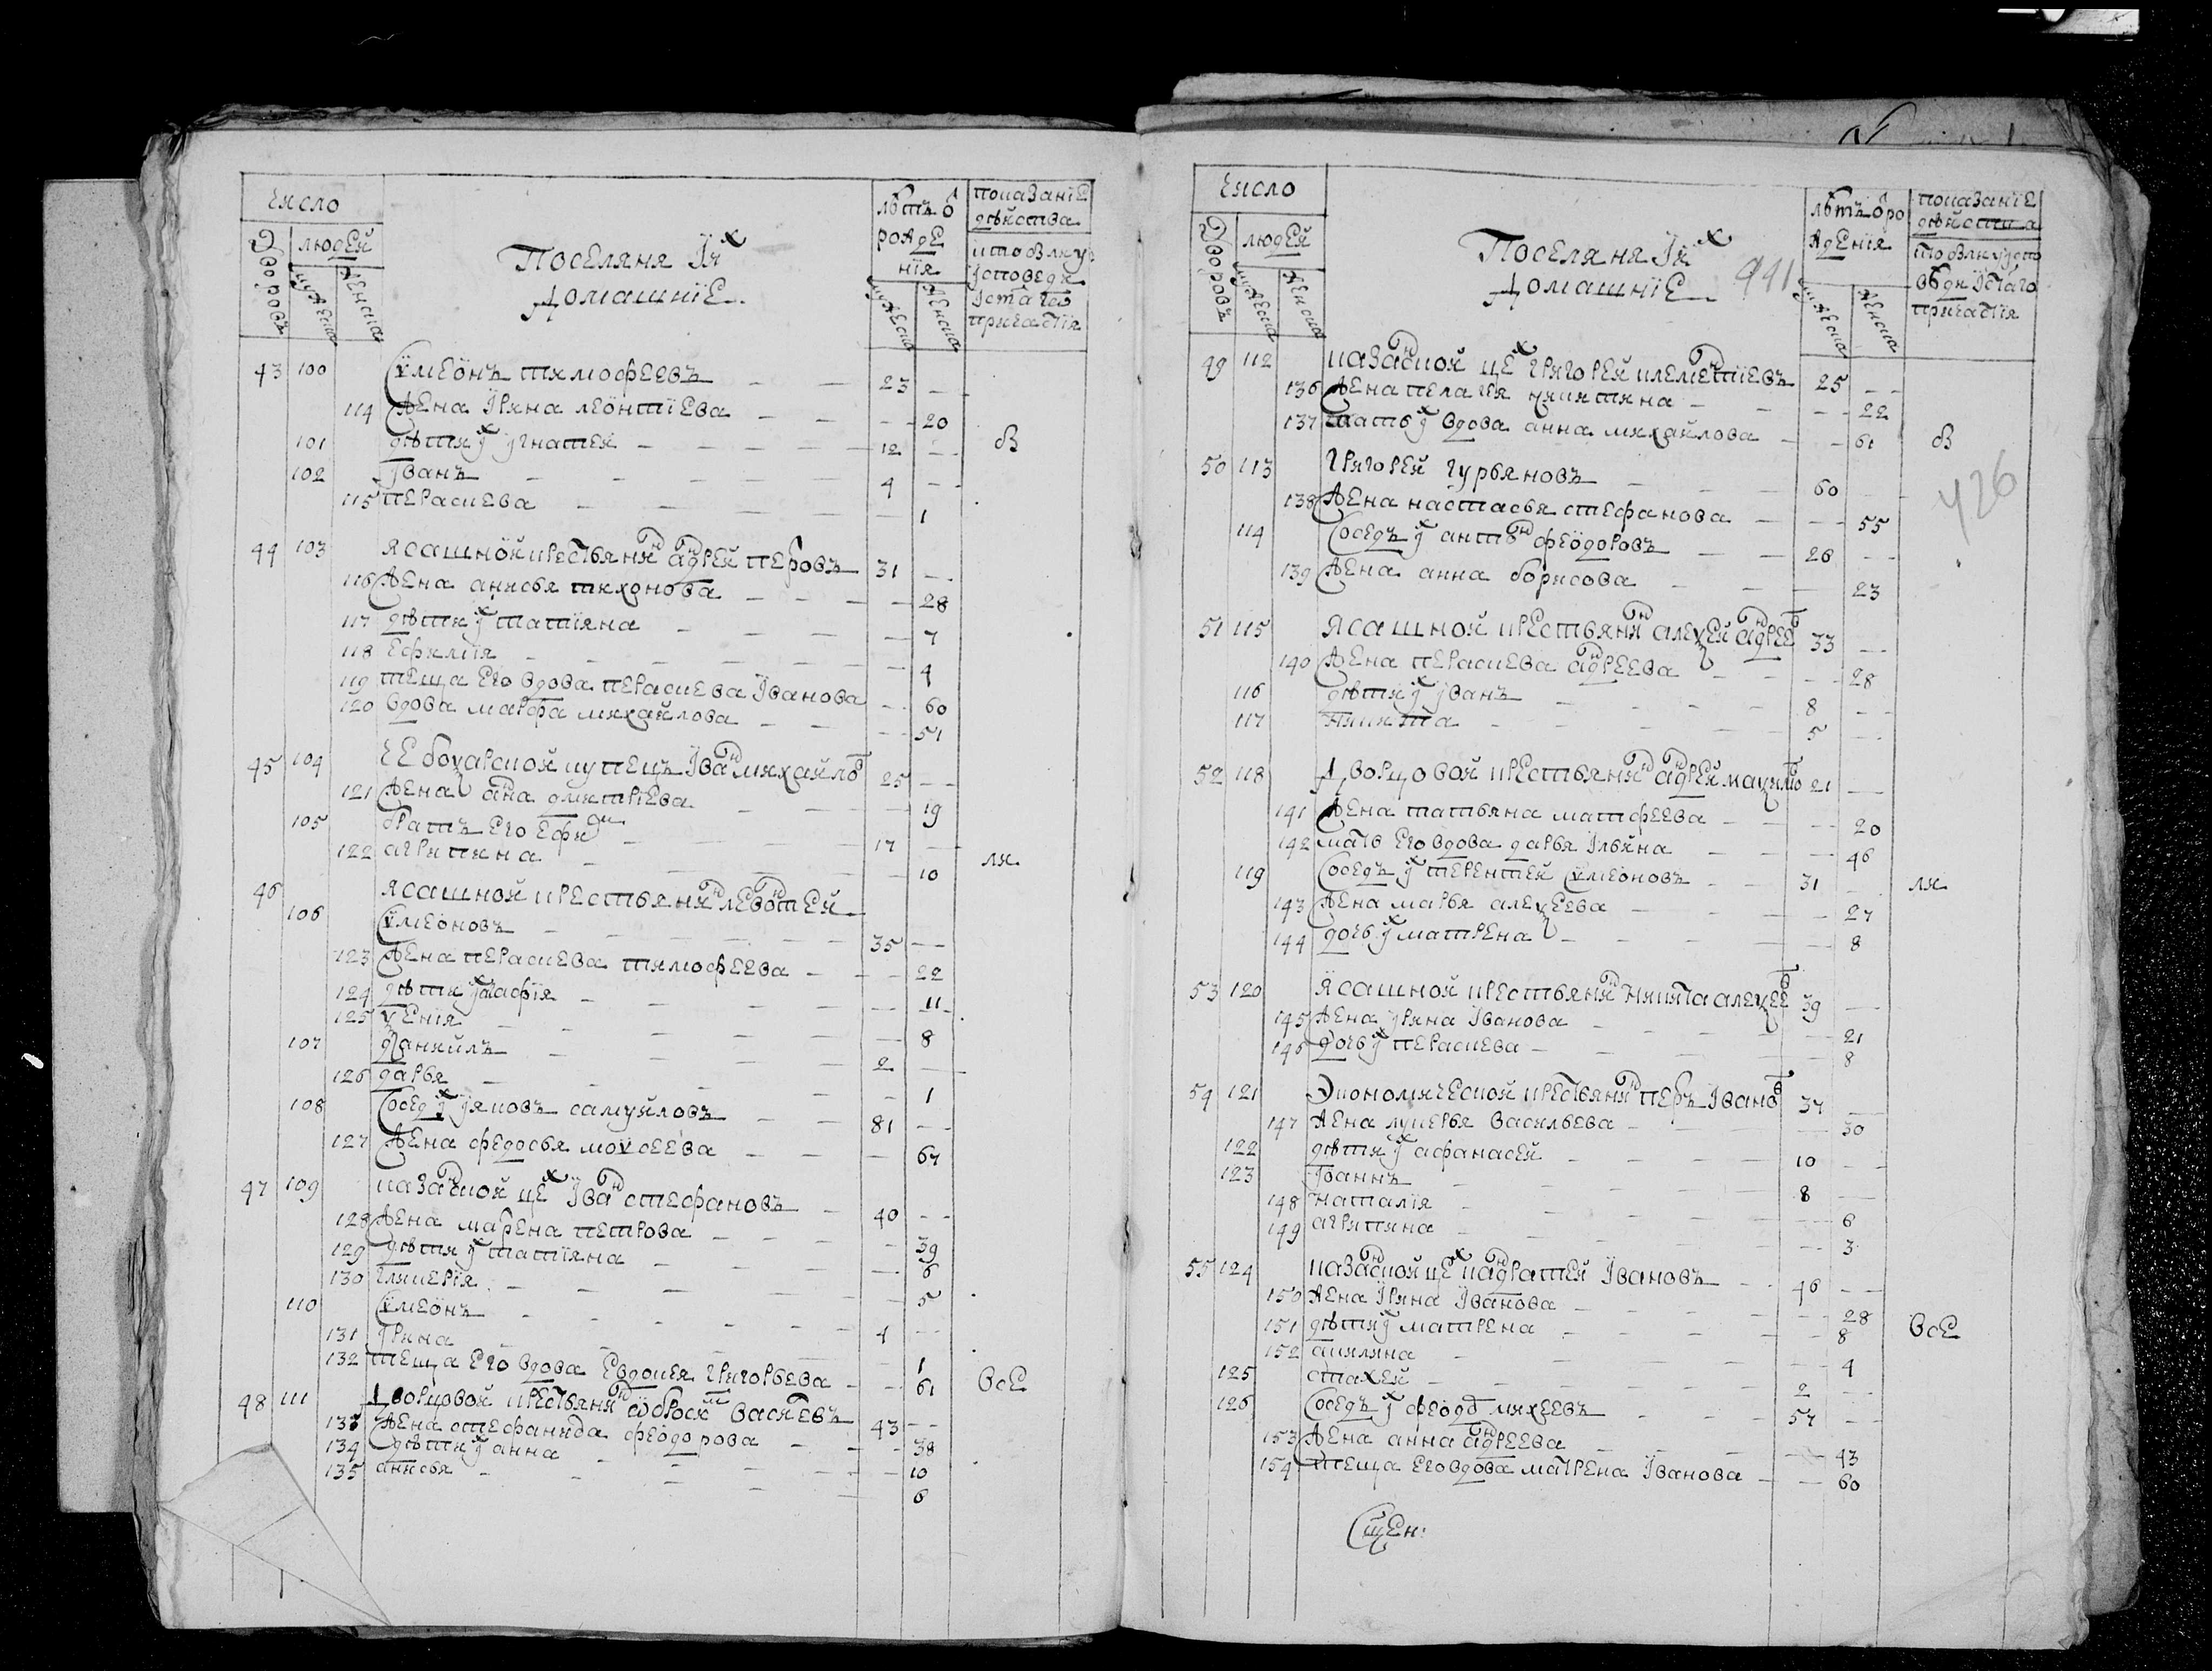 число
Дворовъ
людей
мужеска
женска
Поселяня Їхъ
домашнїе.
лѣтъ ѿ
рожде
нїя
мужеска
женска
показанїе
дѣйства
43 100 Сѵмеонъ тимофеевъ 23
114 Жена Їрина леонтїева 20
101 дѣти их игнатей 12 в
102 Їванъ 4
115 пераскева 1
44 103 ясашной крестьянинъ андрей петровъ 31
116 Жена анисья тихонова 28
117 дѣти их татїяна 7
118 Ефимїя 4
119 теща его вдова пераскева Їванова 60
120 вдова марфа михайлова 51
45 104 бохарской купецъ Їванъ михайловъ 25
121 Жена анна дмитрїева 19
105 братъ его Ефимъ 17
122 агрипина 10 ли
46 ясашной крестьянинъ леѡнтей
106 Сѵмеоновъ 35
123 Жена пераскева тимофеева 22
124 дѣти их агафїя 11
125 ѯенїя 8
107 данийлъ 2
126 дарья 1
108 Соседъ их яковъ самуйловъ 81
127 Жена федосья моѵсеева 67
47 109 казанской цех Їванъ стефановъ 40
128 Жена матрена петрова 39
129 дѣти их татїяна 6
130 гликерїя 5
110 Сѵмеонъ 4
131 Їрина 1
132 теща его вдова Евдокея григорьева 61 все
48 111 дворцовой крестьянинъ аѡбросим василевъ 43
133 Жена стефанида феодорова 38
134 дѣти их анна 10
135 анисья 6
число
Дворовъ
людей
мужеска
женска
Поселяня Їхъ
домашнїе
441
лѣтъ ѿ ро
жденїя
мужеска
женска
показанїе
49 112 казанской цех григорей клементїевъ 25
136 Жена пелагея никитина 22
137 мать их вдова анна михайлова 61 в
50 113 григорей гурьяновъ 60
426
138 Жена настасья стефанова 55
114 Соседъ их антон феодоровъ 26
139 Жена анна борисова 23
51 115 Ясашной крестьянинъ алеѯей андреевъ 33
140 Жена пераскева андреева 28
116 дѣти их иванъ 8
117 никита 5
52 118 дворцовой крестьянинъ андрей маѯимовъ 21
141 Жена татьяна матфеева 20
142 мать его вдова дарья Ильина 46
119 Соседъ их терентей Сѵмеоновъ 31 ли
143 Жена марья алеѯеева 27
144 дочь их матрена 8
53 120 Ясашной крестьянинъ никита алеѯеевъ 39
145 Жена ирина Їванова 21
146 дочь их пераскева 8
54 121 Экономической крестьянинъ петръ Їванов 37
147 Жена лукерья васильева 30
122 дѣти их афанасей 10
123 Їоаннъ 8
148 наталїя 6
149 агрипина 3
55 124 казанской цех кандратей Ївановъ 46
150 Жена Їрина Їванова 28
151 дѣти их матрена 8 все
152 акилина 4
125 стахей 2
126 Соседъ их феодор михеевъ 57
153 Жена анна андреева 43
154 теща его вдова матрена Їванова 60
Сщен: